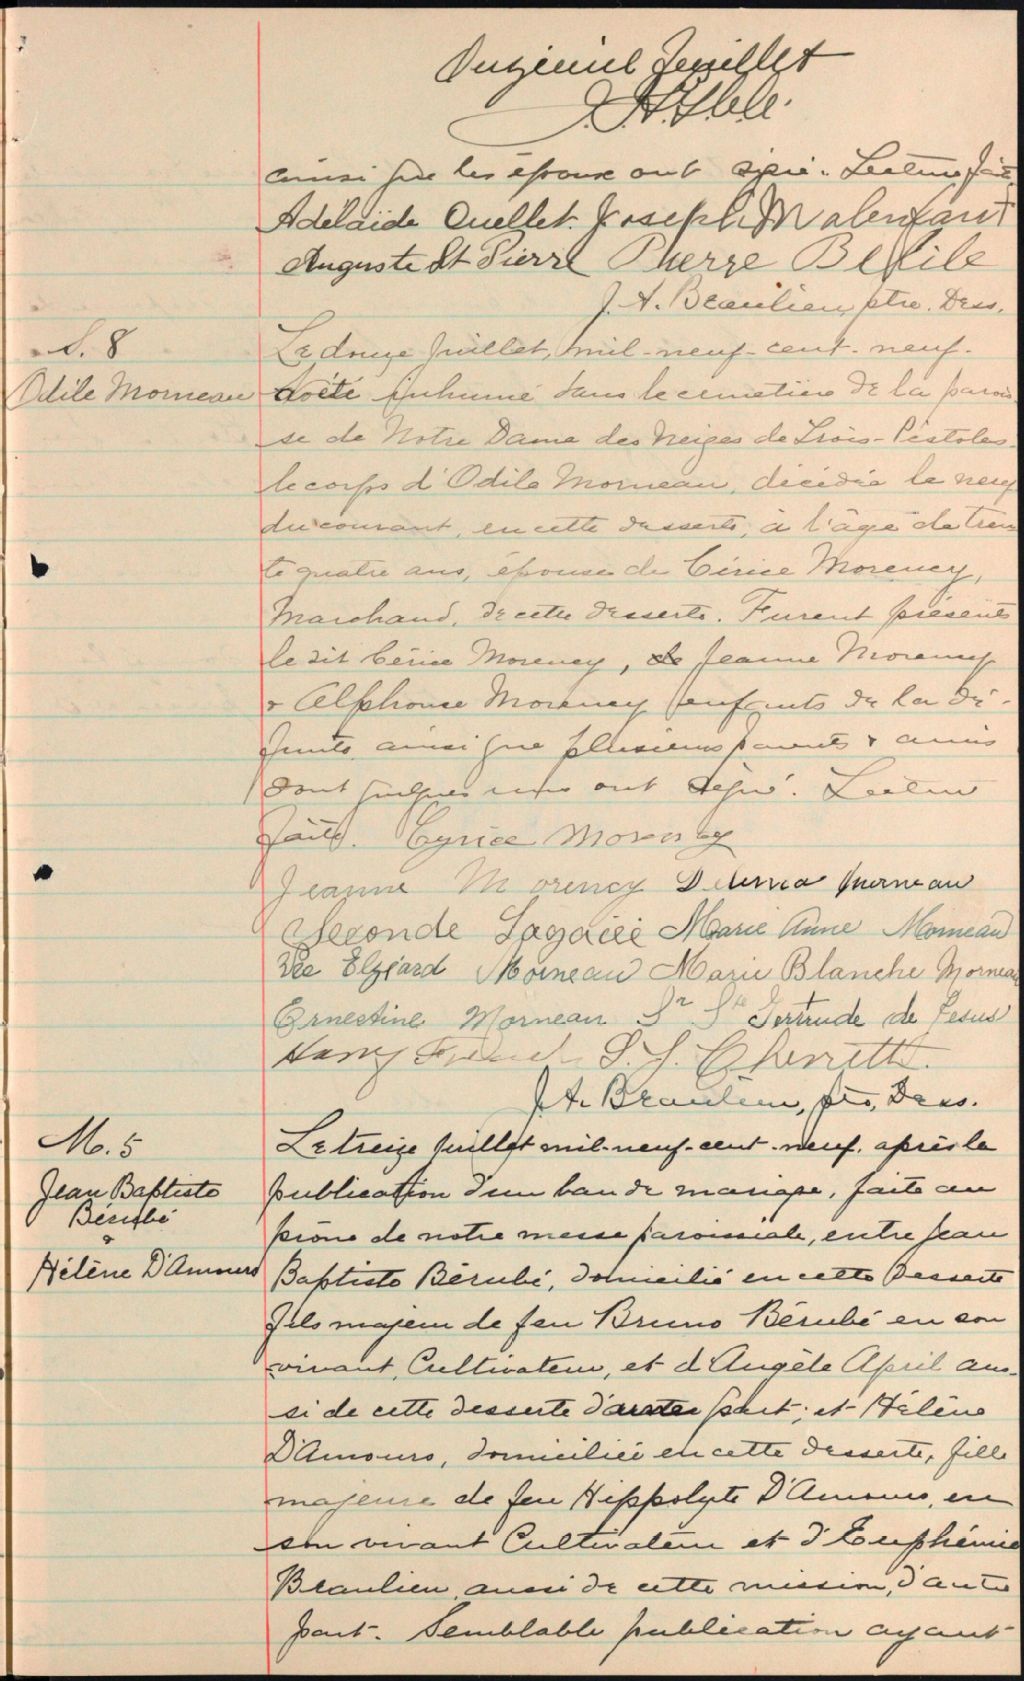 Onzième feuillet
ainsi que les époux ont signé. Lecture faite
Adélaïde Ouellet. Joseph Malenfant
Auguste St Pierre Pierre Belile
J. A. Beaulieu, ptre. Dess.
S. 8
Odile Morneau
Le douze Juillet, mil-neuf-cent-neuf.
a été inhumé dans le cimetière de la parois
se de Notre Dame des Neiges de Trois-Pistoles
le corps d'Odile Morneau, décédée le neuf
du courant, en cette desserte, à l'âge de tren
te quatre ans, épouse de Cérice Morency,
Marchand, de cette desserte. Furent présents
le dit Cérice Morency, Jeanne Morency
& Alphonse Morency enfants de la dé-
funte ainsi que plusieurs parents & amis
dont quelques uns ont signé. Lecture
faite. Cyrice Morency
Jeanne Morency Delima Morneau
Seconde Lagacé Marie Anne Morneau
Vve Elzéard Morneau Marie Blanche Morneau
Ernestine Morneau Sr Ste Gertrude de Jesus
Harry French
J. A. Beaulieu, ptre, Dess.
M. 5
Jean Baptiste
Bérubé
&
Hélène D'Amours
Le treize Juillet mil-neuf-cent-neuf. après la
publication d'un ban de mariage, faite au
prône de notre messe paroissiale, entre Jean
Baptiste Bérubé, domicilié en cette Desserte
fils majeur de feu Bruno Bérubé en son
vivant, Cultivateur, et d'Angèle April aus-
si de cette desserte d'une part; et Hélène
D'Amours, domiciliée en cette desserte, fille
majeure de feu Hippolyte D'Amours, en
son vivant Cultivateur et d'Euphémie
Beaulieu, aussi de cette mission, d'autre
part. Semblable publication ayant